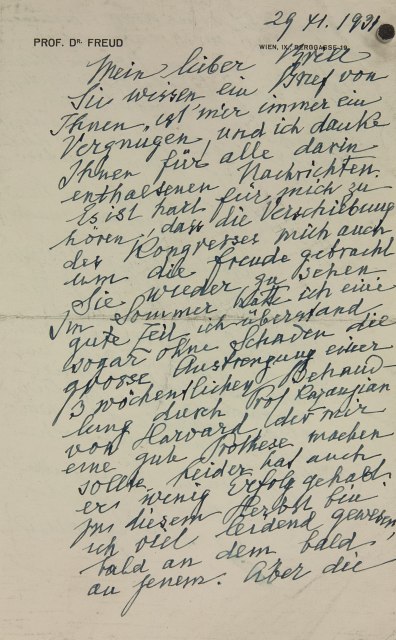 29 XI. 1931
PROF. DR. FREUD
WIEN, IX., BERGGASSE 19
Mein lieber Brill
Sie wissen ein Brief von
Ihnen ist mir immer ein
Vergnügen, und ich danke
Ihnen für alle darin
enthaltenen Nachrichten.
Es ist hart für mich zu
hören, dass die Verschiebung
des Kongresses mich auch
um die Freude gebracht
Sie wieder zu sehen.
Im Sommer hatte ich eine
gute Zeit, ich überstand
sogar ohne Schaden die
grosse Anstrengung einer
3 wöchentlichen Behand-
lung durch Prof Kazanjian
von Harvard, der mir
eine gute Prothese machen
sollte, leider hat auch
er wenig Erfolg gehabt.
In diesem Herbst bin
ich viel leidend gewesen,
bald an dem bald
an jenem. Aber die